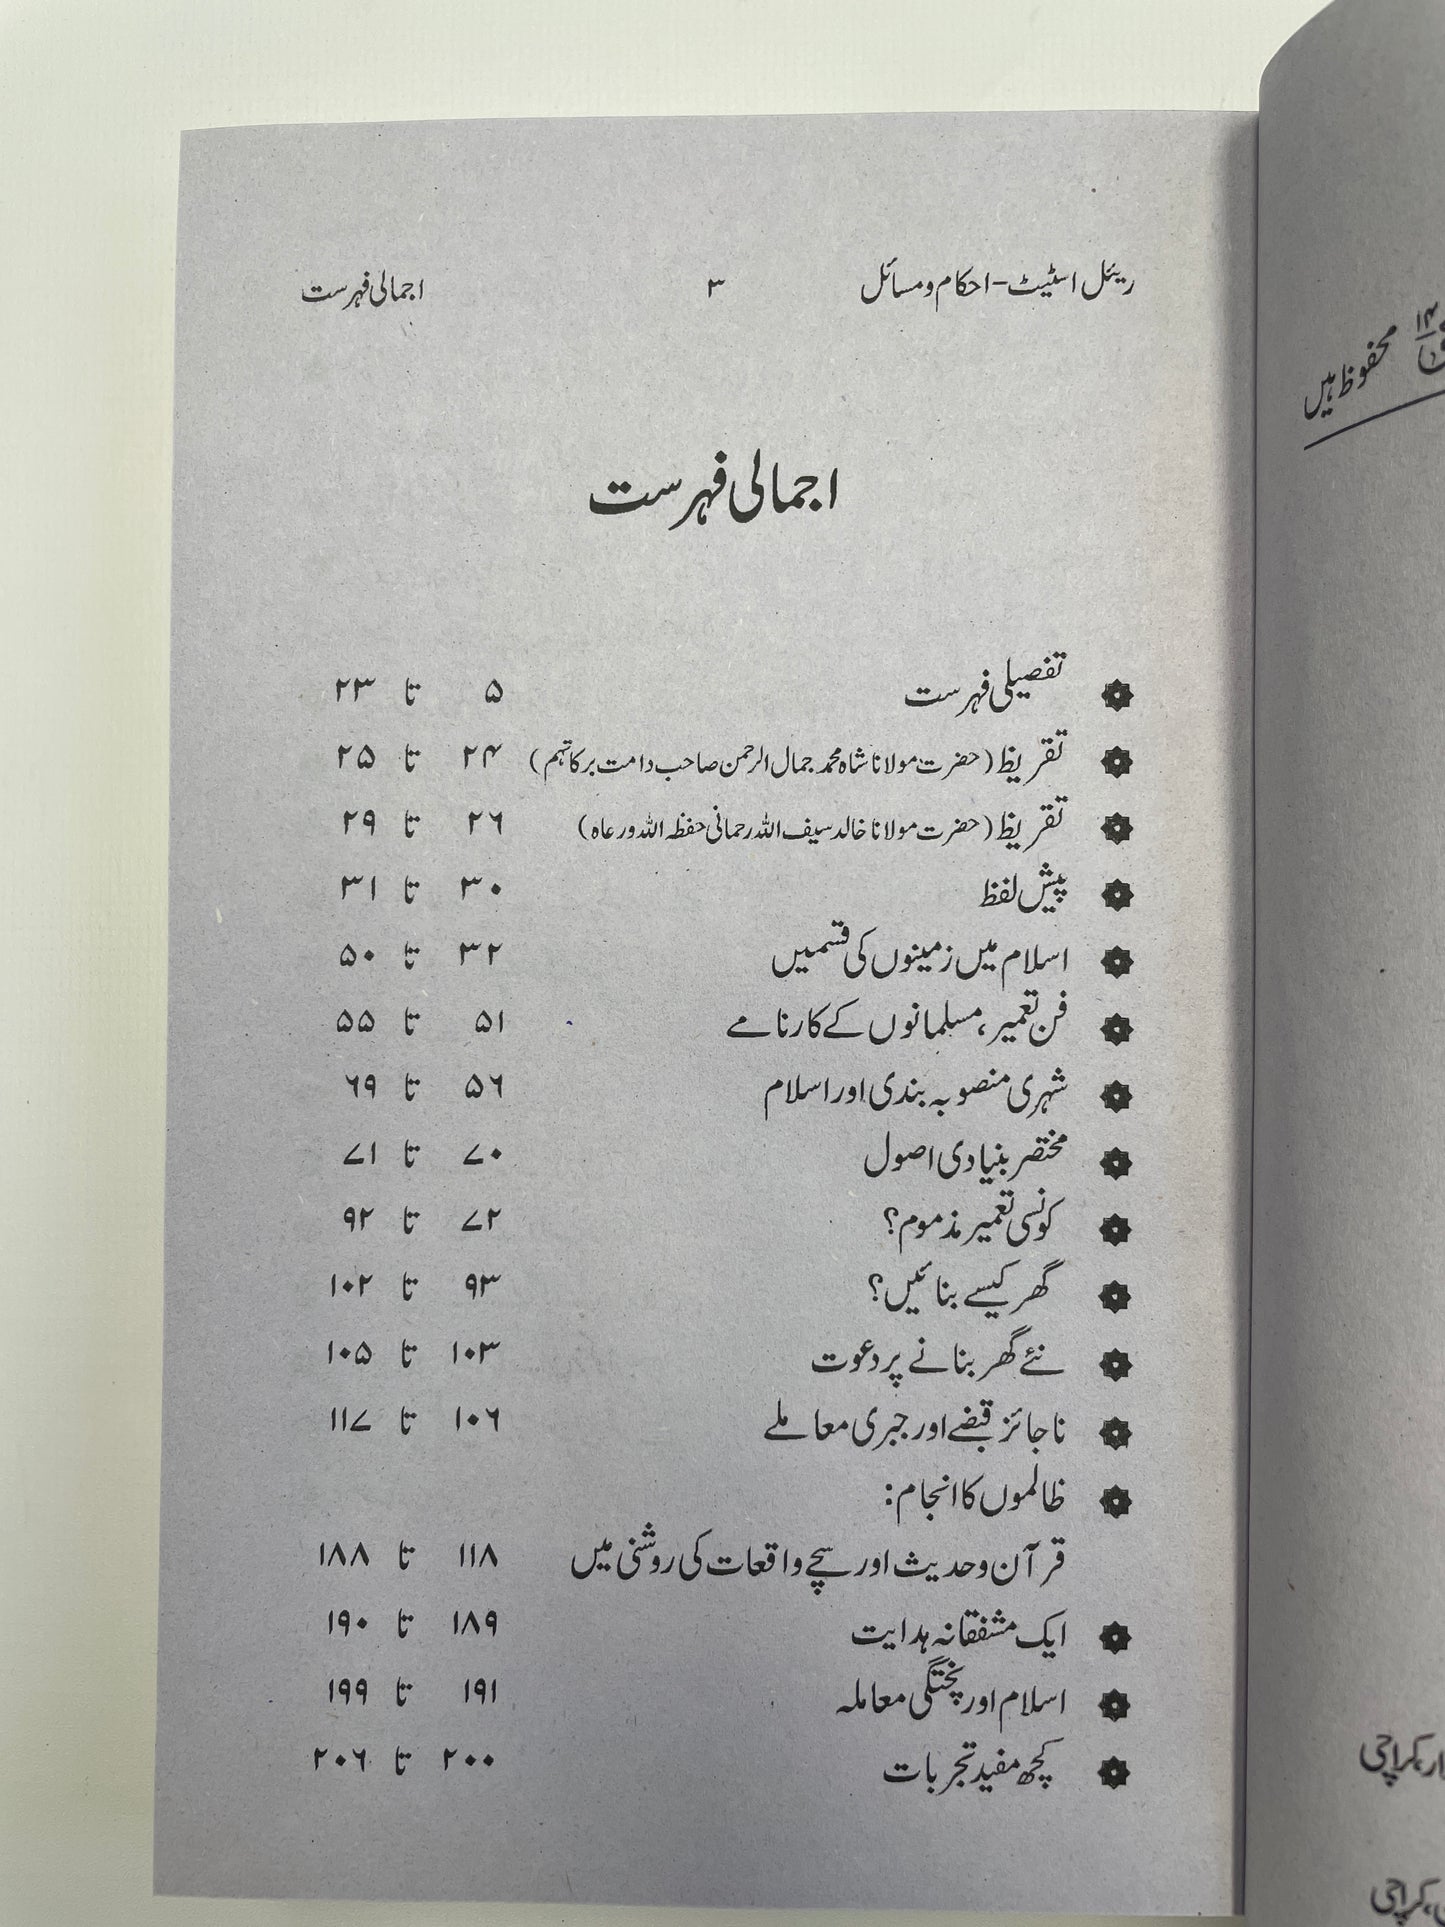 ریئل اسٹیٹ - احکام و مسائل ۳ اجمالی فہرست
اجمالی فہرست
تفصیلی فہرست ۵ تا ۲۳
تقریظ (حضرت مولانا شاہ محمد جمال الرحمن صاحب دامت برکاتہم) ۲۴ تا ۲۵
تقریظ (حضرت مولانا خالد سیف اللہ رحمانی حفظہ اللہ ورعاہ) ۲۶ تا ۲۹
پیش لفظ ۳۰ تا ۳۱
اسلام میں زمینوں کی قسمیں ۳۲ تا ۵۰
فن تعمیر، مسلمانوں کے کارنامے ۵۱ تا ۵۵
شہری منصوبہ بندی اور اسلام ۵۶ تا ۶۹
مختصر بنیادی اصول ۷۰ تا ۷۱
کونسی تعمیر مذموم؟ ۷۲ تا ۹۲
گھر کیسے بنائیں؟ ۹۳ تا ۱۰۲
نئے گھر بنانے پر دعوت ۱۰۳ تا ۱۰۵
ناجائز قبضے اور جبری معاملے ۱۰۶ تا ۱۱۷
ظالموں کا انجام:
قرآن وحدیث اور سچے واقعات کی روشنی میں ۱۱۸ تا ۱۸۸
ایک مشفقانہ ہدایت ۱۸۹ تا ۱۹۰
اسلام اور پختگی معاملہ ۱۹۱ تا ۱۹۹
کچھ مفید تجربات ۲۰۰ تا ۲۰۶
محفوظ ہیں
کراچی
کراچی